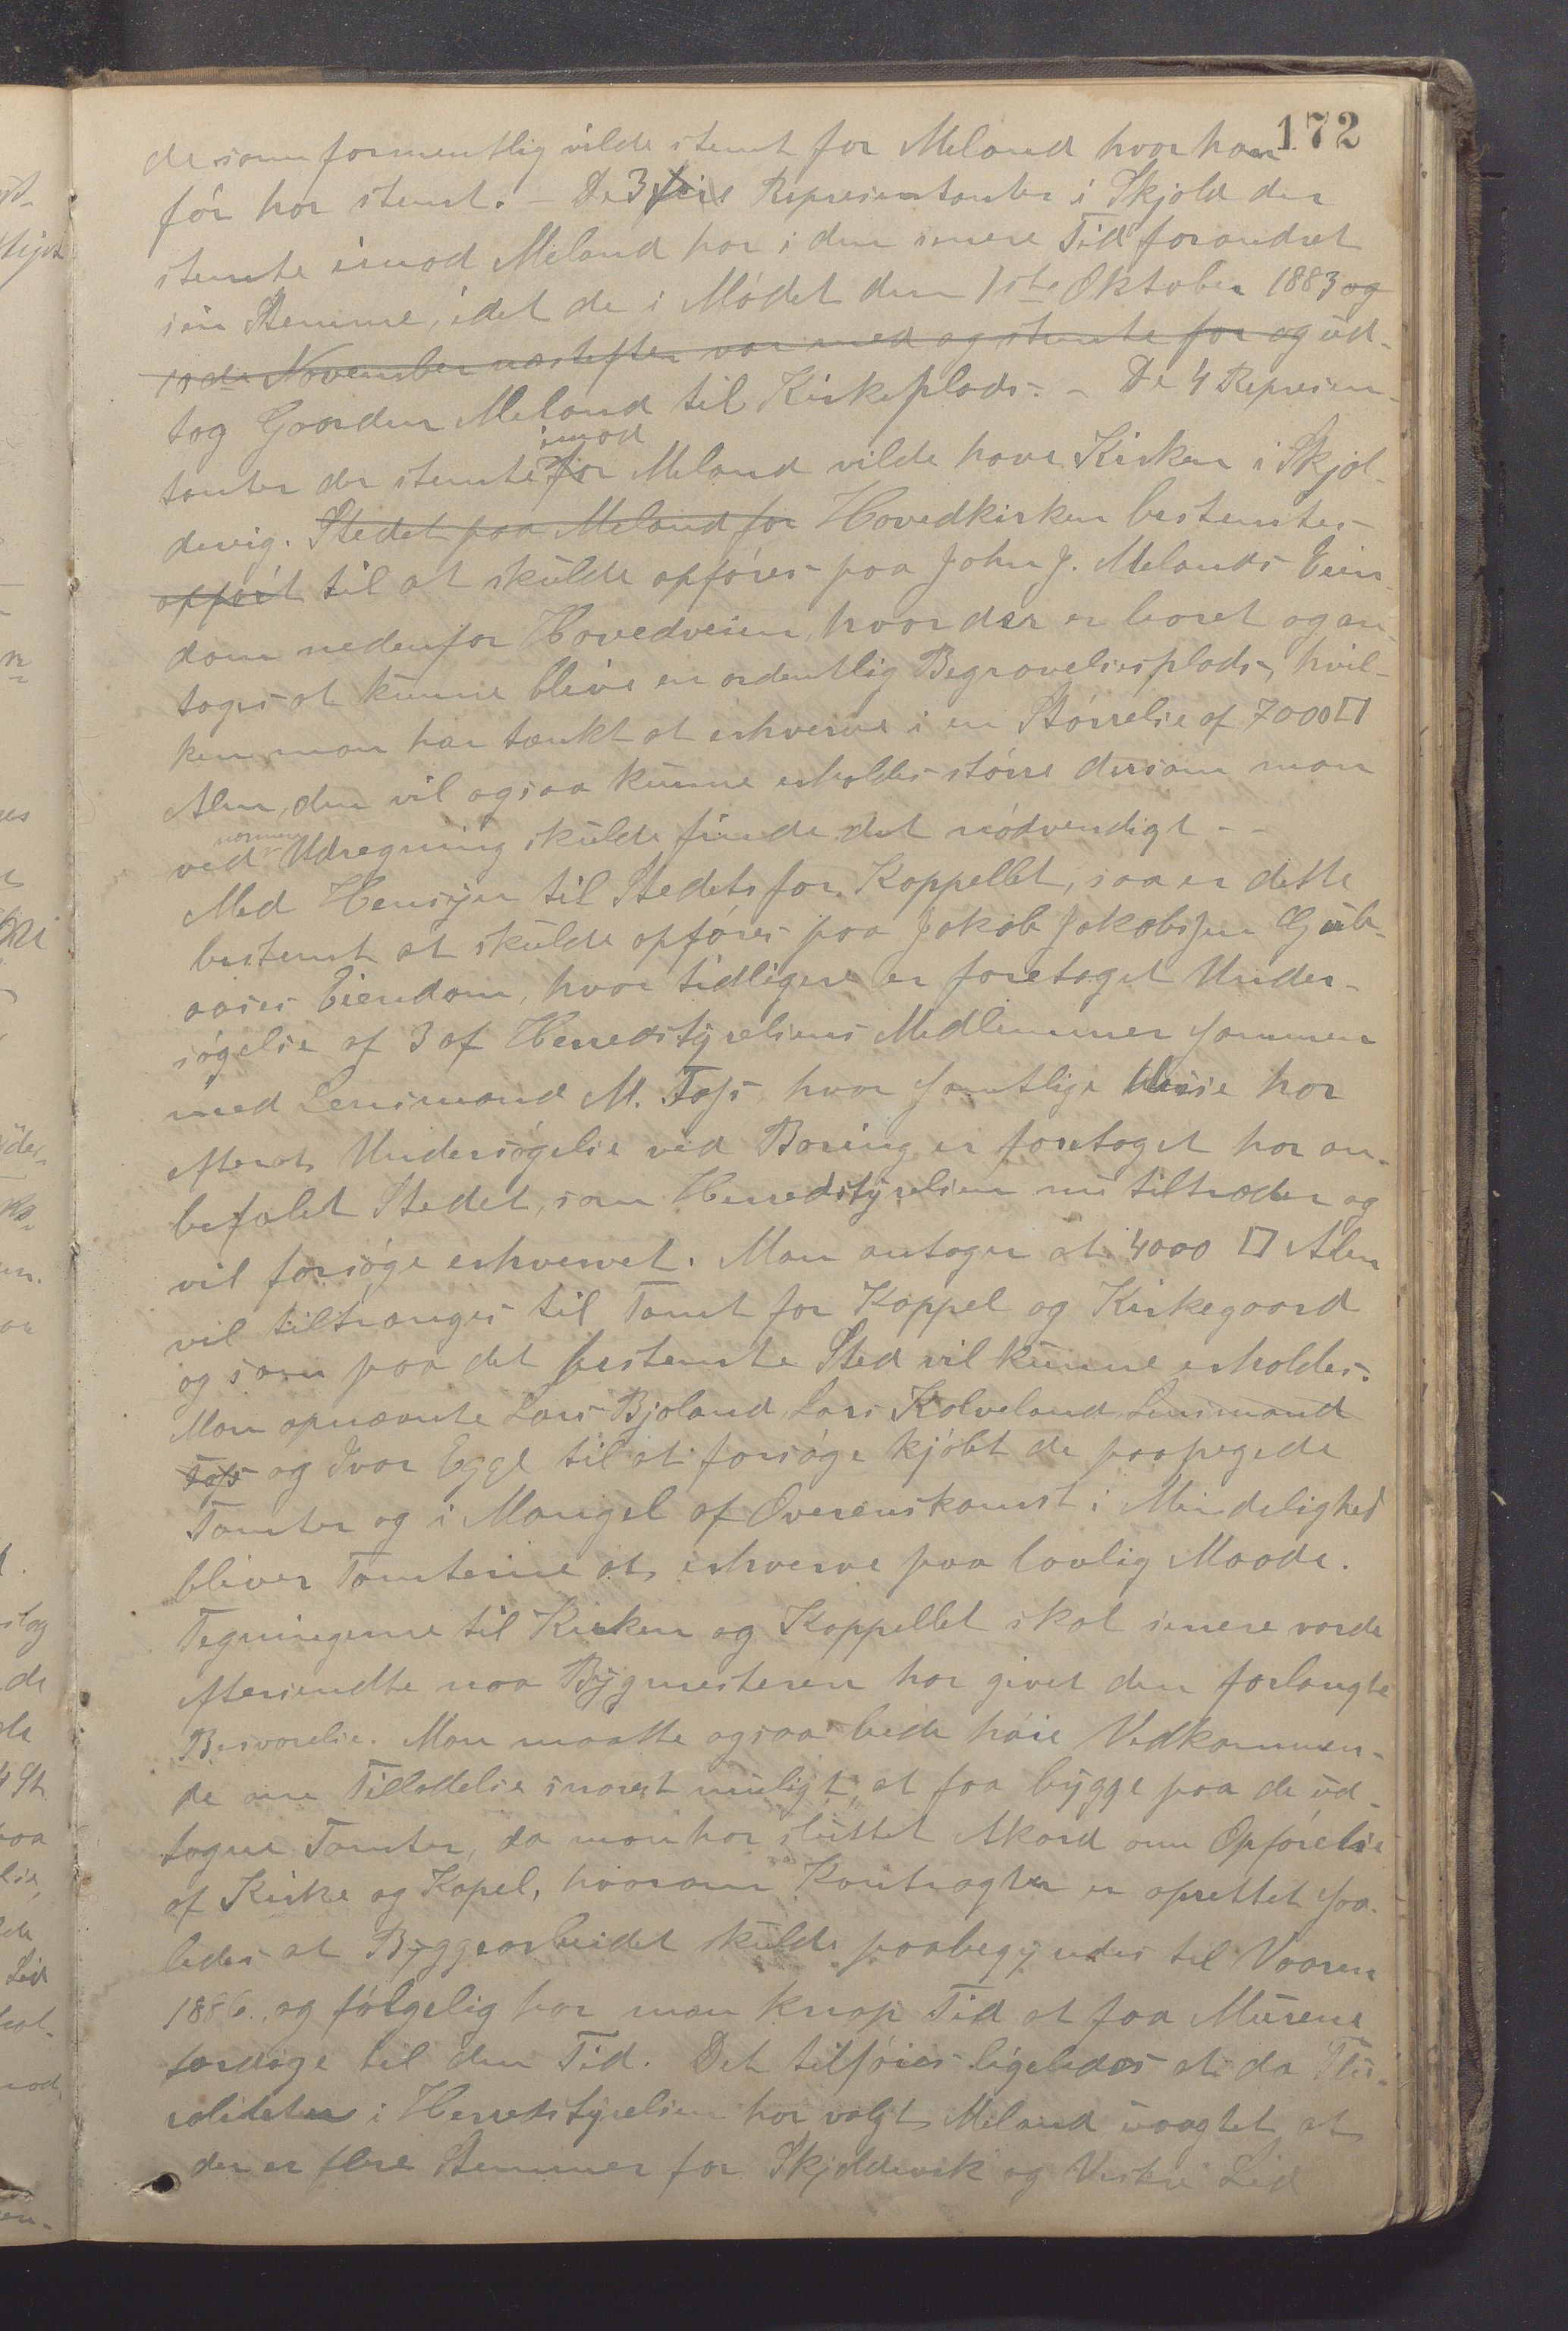 172
de som formentlig vilde stemt for Meland hvor han
før har stemt. – De 3 fire Repræsentanter i Skjold der
stemte imod Meland har i den senere Tid forandret
sin Stemme, idet de i Mødet den 1ste Oktober 1883 og
10de November næstefter var med og stemte for og ud-
tog Gaarden Meland til Kirkeplads. – De 4 Repræsen-
imod
tanter der stemte for Meland vilde have Kirken i Skjol-
devig. Stedet paa Meland for Hovedkirken bestemtes
opført til at skulde opføres paa John J. Melands Eien-
dom nedenfor Hovedveien, hvor der er boret og an-
tages at kunne blive en ordentlig Begravelsesplads, hvil-
ken man har tænkt at erhverve i en Størrelse af 7000 □
Alen, den vil ogsaa kunne erholdes større dersom man
ved Udregning skulde finde det nødvendigt –
Med Hensyn til Stedet for Kappellet, saa er dette
bestemt at skulde opføres paa Jakob Jakobsen Gjub-
aases Eiendom, hvor tidligere er foretaget Under-
søgelse af 3 af Herredstyrelsens Medlemmer sammen
med Lensmand M. Tofs, hvor samtlige disse har
efterat Undersøgelse ved Boring er foretaget har an-
befalet Stedet, som Herredstyrelsen nu tiltræder og
vil forsøge erhvervet. Man antager at 4000 □ Alen
vil tiltrænges til Tomt for Kappel og Kirkegaard
og som paa det bestemte Sted vil kunne erholdes.
Man opnævnte Lars Bjoland, Lars Kolveland, Lensmand
Tofs og Ivar Egge til at forsøge kjøbt de paapegede
Tomter og i Mangel af Overenskomst i Mindelighed
bliver Tomterne at erhverve paa lovlig Maade.
Tegningerne til Kirken og Kappellet skal senere vorde
eftersendte naar Bygmesteren har givet den forlangte
Besvarelse. Man maatte ogsaa bede høie Vedkommen-
de om Tilladelse snarest muligt, at faa bygge paa de ud-
tagne Tomter, da man har sluttet Akord om Opførelse
af Kirke og Kapel, hvorom Kontragter er oprettet saa-
ledes at Byggearbeidet skulde paabegyndes til Vaaren
1886. og følgelig har man knap Tid at faa Murene
færdige til den Tid. Det tilføies ligeledes at da Plu-
raliteten i Herredstyrelsen har valgt Meland uagtet at
der er flere Stemmer for Skjoldevik og Vestre Lid